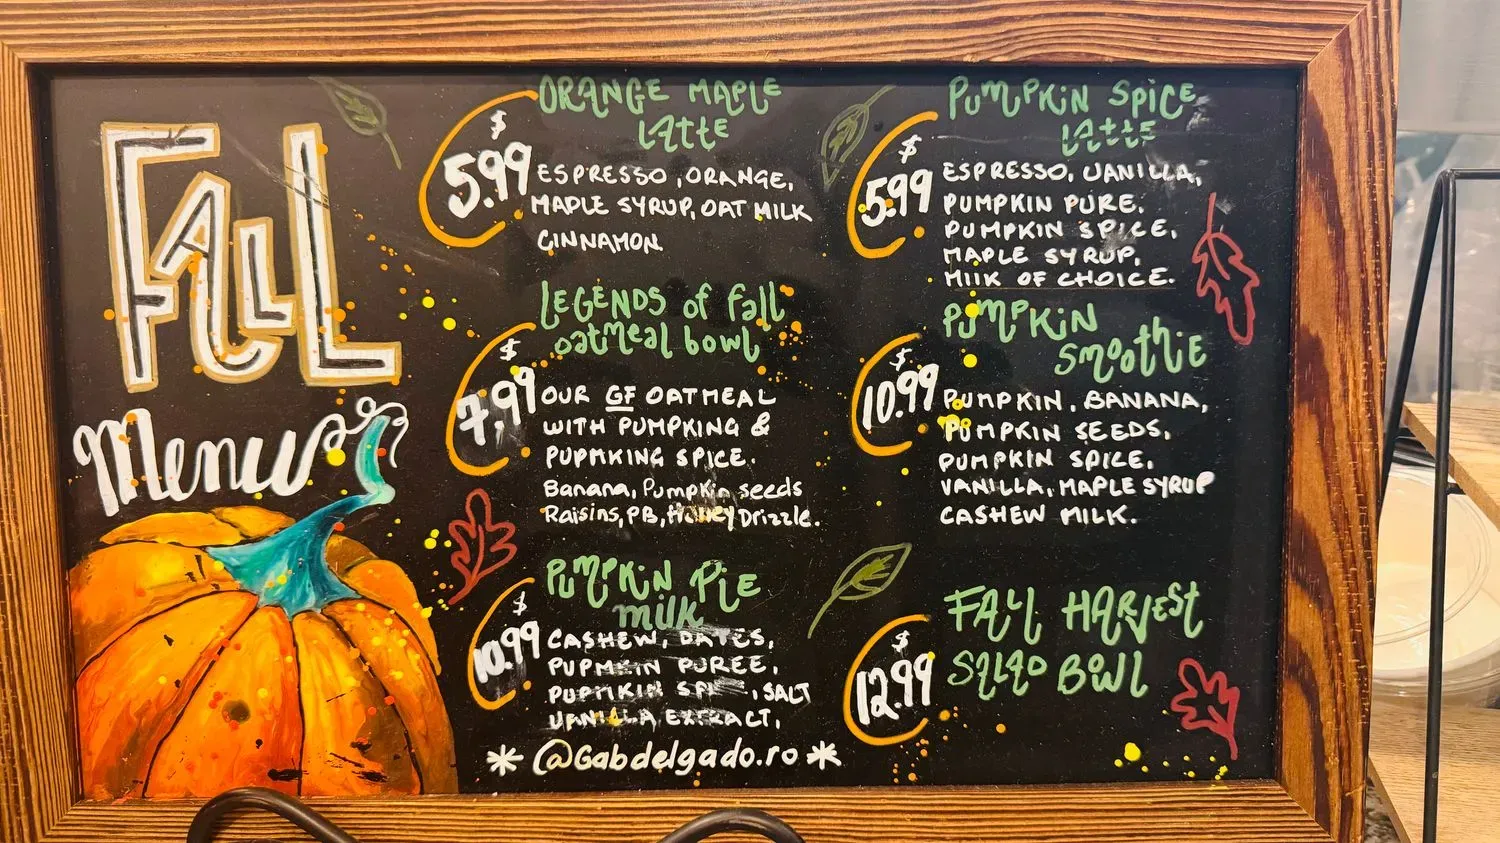 FALL
Menu
ORANGE MAPLE
LATTE
$
5.99
ESPRESSO, ORANGE,
MAPLE SYRUP, OAT MILK
CINNAMON
LEGENDS of fall
oatmeal bowl
$
7.99
OUR GF OATMEAL
WITH PUMPKING &
PUPMKING SPICE.
Banana, Pumpkin seeds
Raisins, PB, Honey Drizzle.
PUMPKIN PIE
milk
$
10.99
CASHEW, DATES,
PUPMKIN PUREE,
PUPMKIN , SALT
VANILLA EXTRACT,
* @Gabdelgado.ro *
PUMPKIN SPICE
LATTE
$
5.99
ESPRESSO, VANILLA,
PUMPKIN PURE.
PUMPKIN SPICE,
MAPLE SYRUP,
MILK OF CHOICE.
PUMPKIN
SMOOTHIE
$
10.99
PUMPKIN, BANANA,
PUMPKIN SEEDS,
PUMPKIN SPICE.
VANILLA, MAPLE SYRUP
CASHEW MILK.
FALL HARVEST
SALAD BOWL
$
12.99